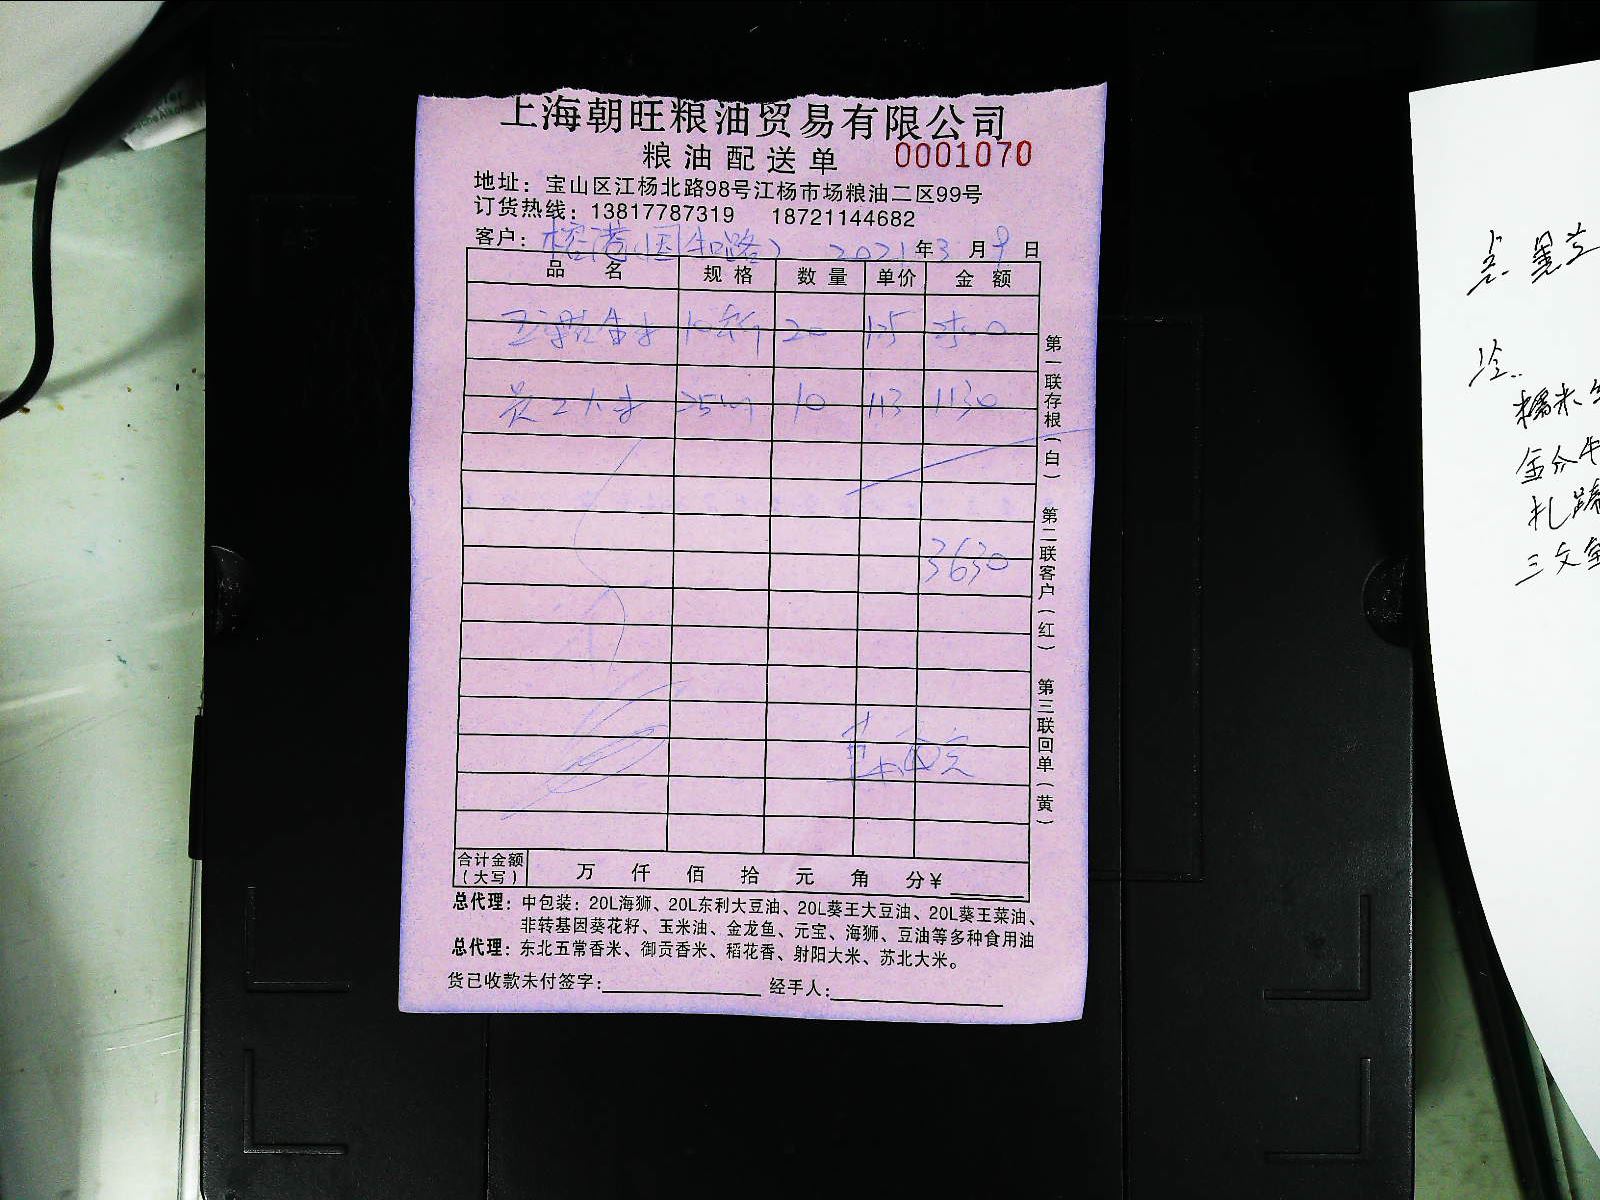 上海朝旺粮油贸易有限公司
粮油配送单 0001070
地址：宝山区江杨北路98号江杨市场粮油二区99号
订货热线：13817787319 18721144682
客户：榕港(国和路) 2021年3月9日
品名 规格 数量 单价 金额
20 125 2500
员工大米 10 113 1130
3630
第一联存根(白) 第二联客户(红) 第三联回单(黄)
合计金额(大写) 万 仟 佰 拾 元 角 分¥
总代理：中包装：20L海狮、20L东利大豆油、20L葵王大豆油、20L葵王菜油、
非转基因葵花籽、玉米油、金龙鱼、元宝、海狮、豆油等多种食用油
总代理：东北五常香米、御贡香米、稻花香、射阳大米、苏北大米。
货已收款未付签字： 经手人：
糯米
三文